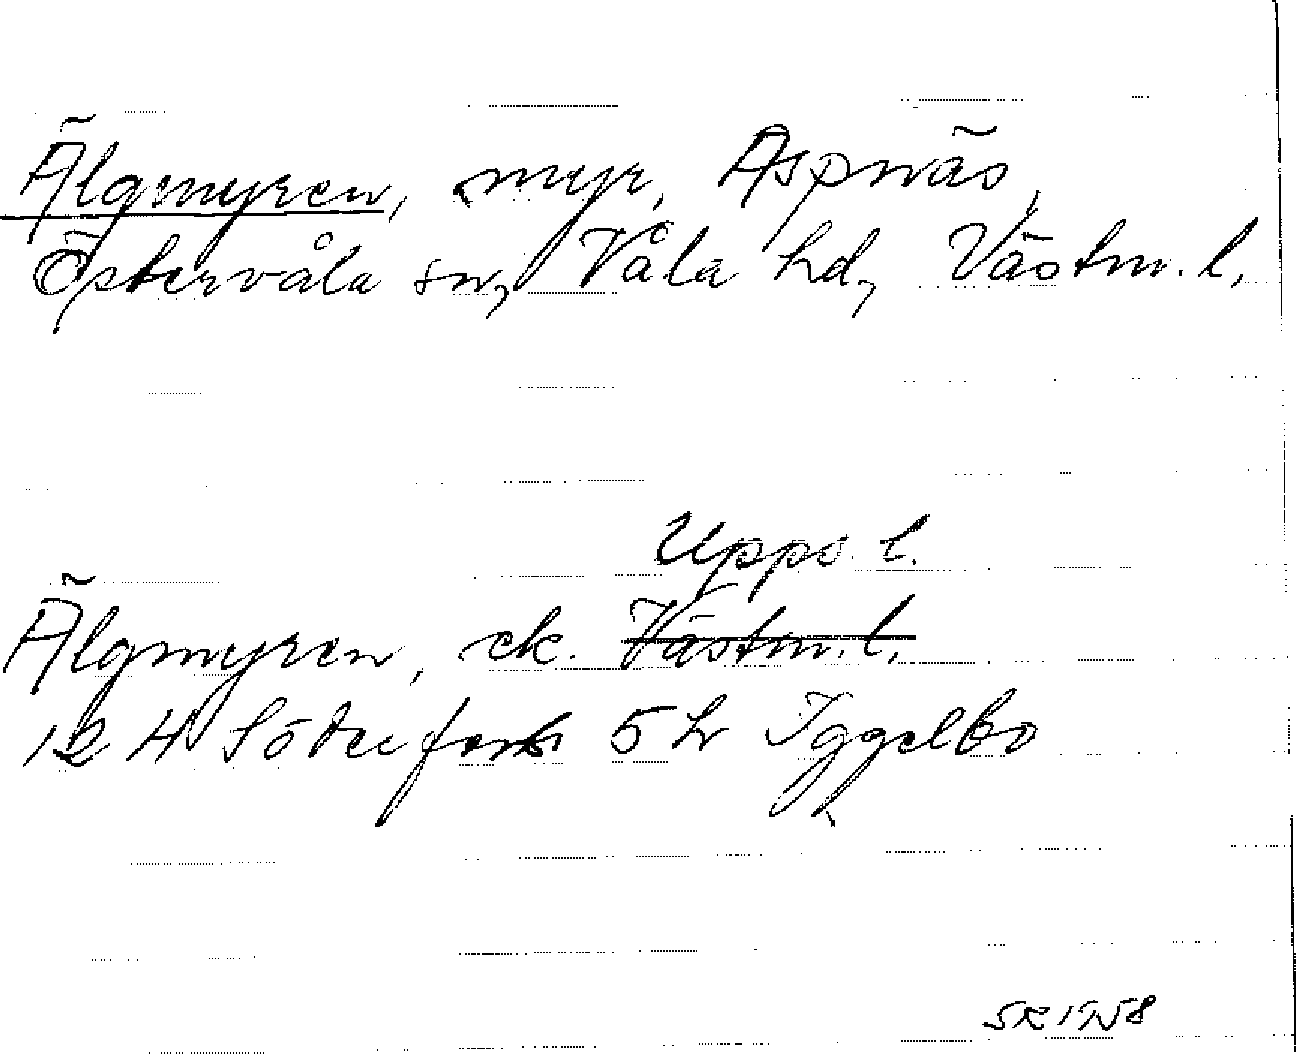 Älgmyren, myr, Aspnäs,
Östervåla sn, Våla hd, Västm. l.
Upps. l.
Älgmyren, ek. Västm. l.
12 H Söderfors 5 h Iggelbo